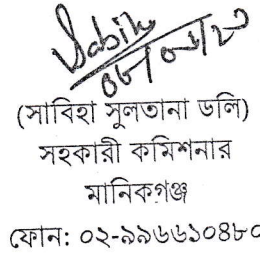 (সাবিহা সুলতানা ডলি)
সহকারী কমিশনার
মানিকগঞ্জ
ফোন: ০২-৯৯৬৬১০৪৮০